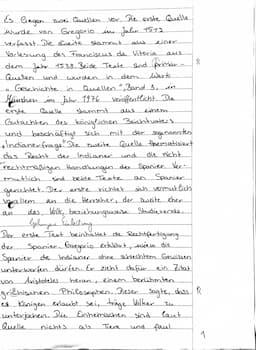 Es liegen zwei Quellen vor. Die erste Quelle
wurde von Gregorio im Jahr 1512
verfasst. Die zweite stammt aus einer
Vorlesung des Franciscus de Vitoria aus
dem Jahr 1539. Beide Texte sind Primär-
quellen und wurden in dem Werk
"Geschichte in Quellen", Band 3, in
München im Jahr 1976 veröffentlicht. Die
erste Quelle stammt aus einem
Gutachten des königlichen
und beschäftigt sich mit der sogenannten
"Indianerfrage". Die zweite Quelle thematisiert
das Recht der Indianer und die nicht
rechtmäßigen Handlungen der Spanier. Ver-
mutlich sind beide Texte an Spanier
gerichtet. Der erste richtet sich vermutlich
vorallem an die Herrscher, der zweite eher
an das Volk, beziehungsweise Studierende.
Einleitung
Der erste Text beinhaltet die Rechtfertigung
der Spanier. Gregorio erklärt, wieso die
Spanier die Indianer ohne schlechtem Gewissen
unterwerfen dürfen. Er zieht dafür ein Zitat
von Aristoteles heran, einem berühmten
griechischen Philosophen. Dieser sagte, dass
es Königen erlaubt sei, träge Völker zu
unterjochen. Die Einheimischen sind laut
Quelle nichts als Tiere und faul
R
R
1